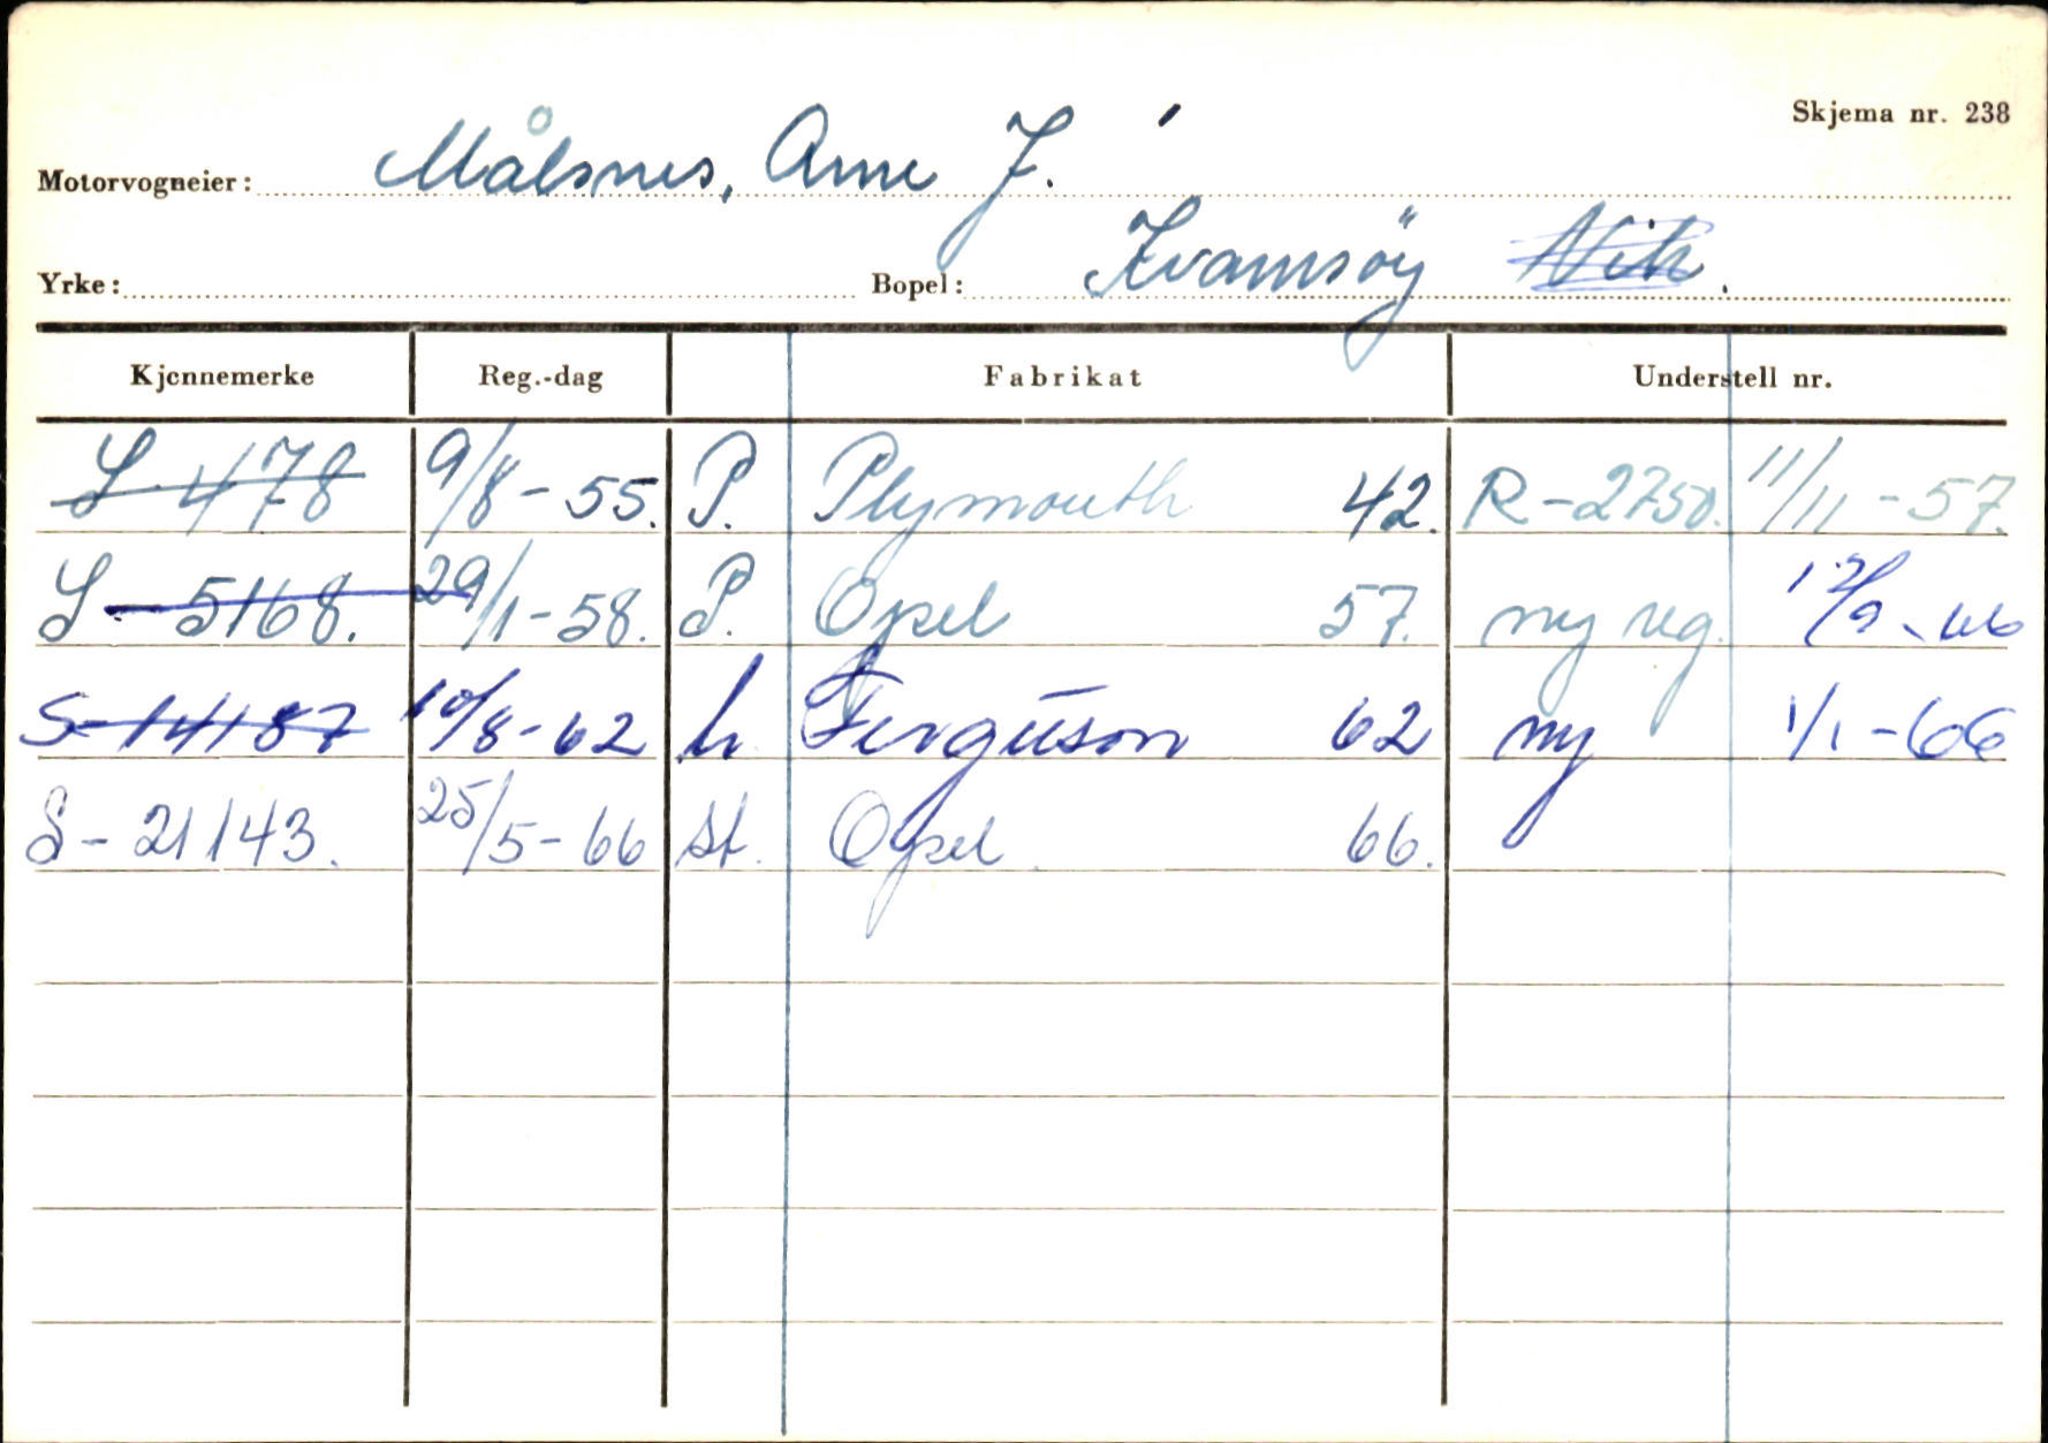 Skjema nr. 238
Motorvogneier: Målsnes, Arne J.
Yrke: Bopel: Kvamsöy Vik.
Kjennemerke Reg.-dag Fabrikat Understell nr.
S 478 9/8-55. P. Plymouth 42. R-2750. 11/11-57.
S-5168. 29/1-58. P. Opel 57. ny reg. 12/9-66
S-14187 10/8-62 Ferguson 62 ny 1/1-66
S-21143. 25/5-66 St. Opel 66.